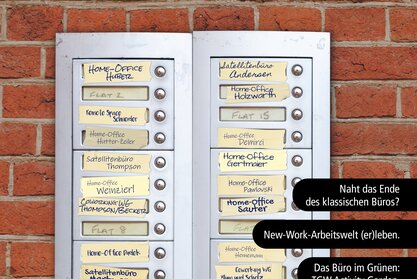 HOME-OFFICE
HUBER
FLAT 2
Remote Space
Schneider
Home-Office
Hutter-Zoller
Satellitenbüro
Thompson
Home-Office
Weinzierl
COWORKING WG
THOMPSON/BECKER
FLAT 8
Home-Office
Satellitenbüro
Satellitenbüro
Andersen
Home-Office
Holzwarth
FLAT 15
Home-Office
Demirci
Home-Office
Gertmaier
Home-Office
Pawlovski
Home-Office
Sauter
Home-Office
Coworking WG
Naht das Ende
des klassischen Büros?
New-Work-Arbeitswelt (er)leben.
Das Büro im Grünen: